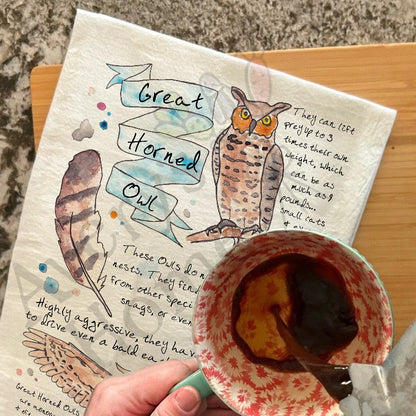 Great
Horned
Owl
They can lift
prey up to 3
times their own
weight, which
can be as
much as 9
pounds...
small cats
These Owls do n
nests. They find
from other speci
snags, or even
Highly aggressive, they hav
to drive even a bald ea
Great Horned Owls